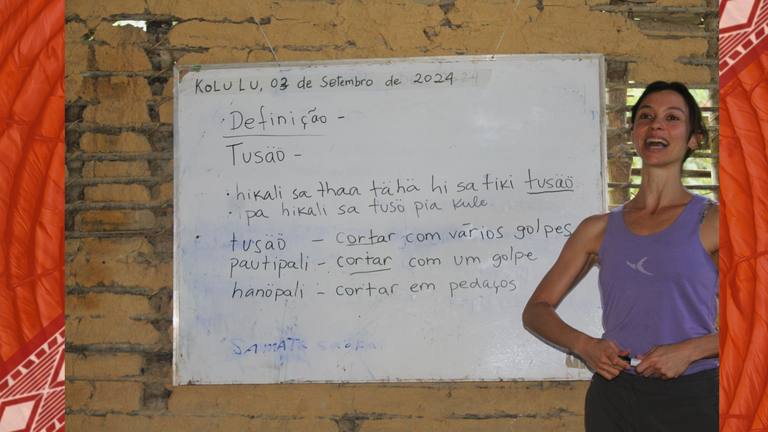 KOLULU, 03 de Setembro de 2024
Definição -
Tusäö -
· hikali sa thaa tähä hi sa tiki tusäö
· ipa hikali sa tusö pia kule
tusäö - cortar com vários golpes
pautipali - cortar com um golpe
hanöpali - cortar em pedaços